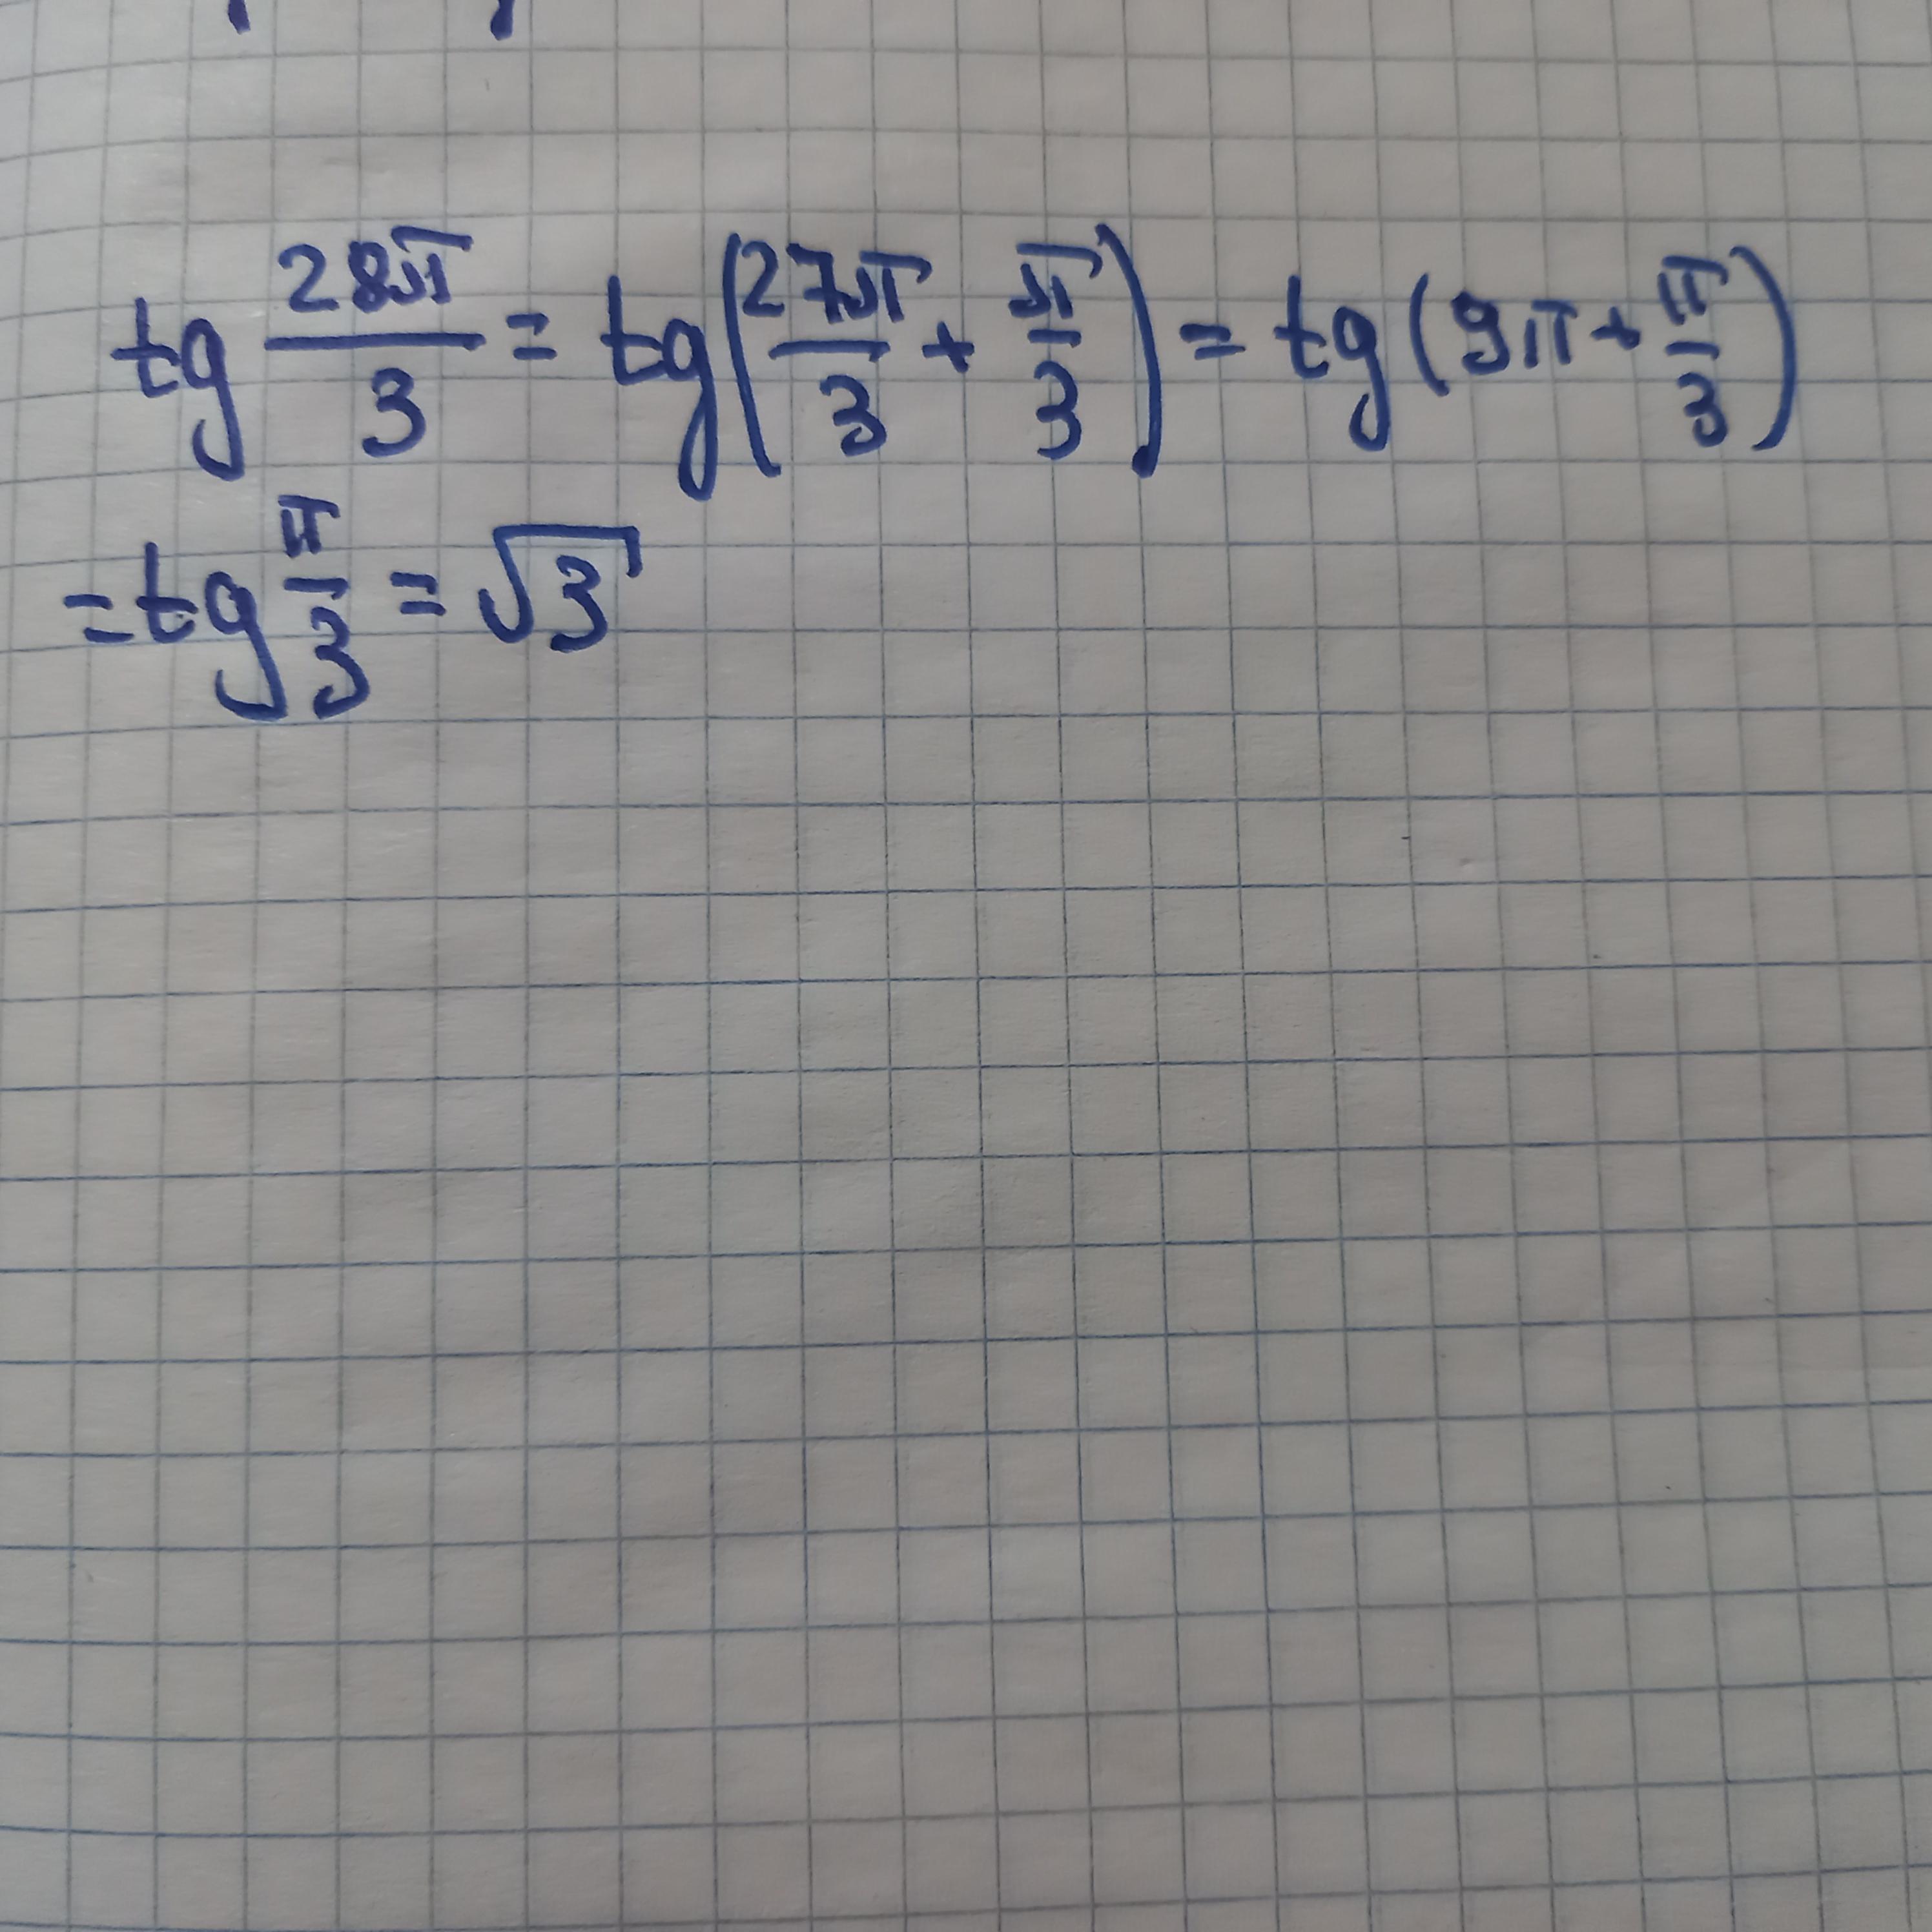 tg 28π/3 = tg(27π/3 + π/3) = tg(9π + π/3)
= tg π/3 = √3